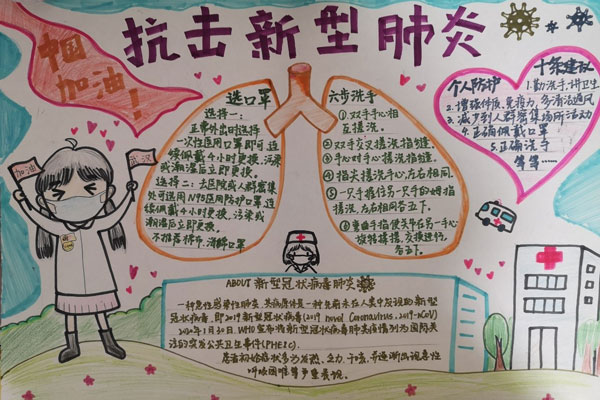 抗击新型肺炎
中国
加油!
加油
武汉
选口罩
选择一:
正常外出时选择
一次性医用口罩即可,连
续佩戴4小时更换,污染
或潮湿后立即更换。
选择二:去医院或人群密集
处可选用N95医用防护口罩
续佩戴4小时更换,污染或
潮湿后立即更换。
不推荐棉布、海绵口罩
六步洗手
①双手手心相
互搓洗。
②双手交叉搓洗指缝。
③手心对手心搓洗指缝。
④指尖搓洗手心,左右相同。
⑤一只手握住另一只手的拇指
搓洗,左右相同各五下。
另一手心
旋转揉搓,交换进行,
各五下。
十条建议
个人防护
1.勤洗手,讲卫生
2.增强体质、免疫力,多清洁通风
3.减少到人群密集场所活动
4.正确佩戴口罩
5.正确洗手
等等……
ABOUT 新型冠状病毒肺炎
一种急性感染性肺炎,其病原体是一种先前未在人类中发现的新型
冠状病毒,即2019新型冠状病毒(2019 novel Coronavirus,2019-nCoV)
2020年1月30日,WHO宣布将新型冠状病毒肺炎疫情列为国际关
注的突发公共卫生事件(PHEIC)。
患者初始症状多为发热、乏力、干咳,并逐渐出现
呼吸困难等严重表现。